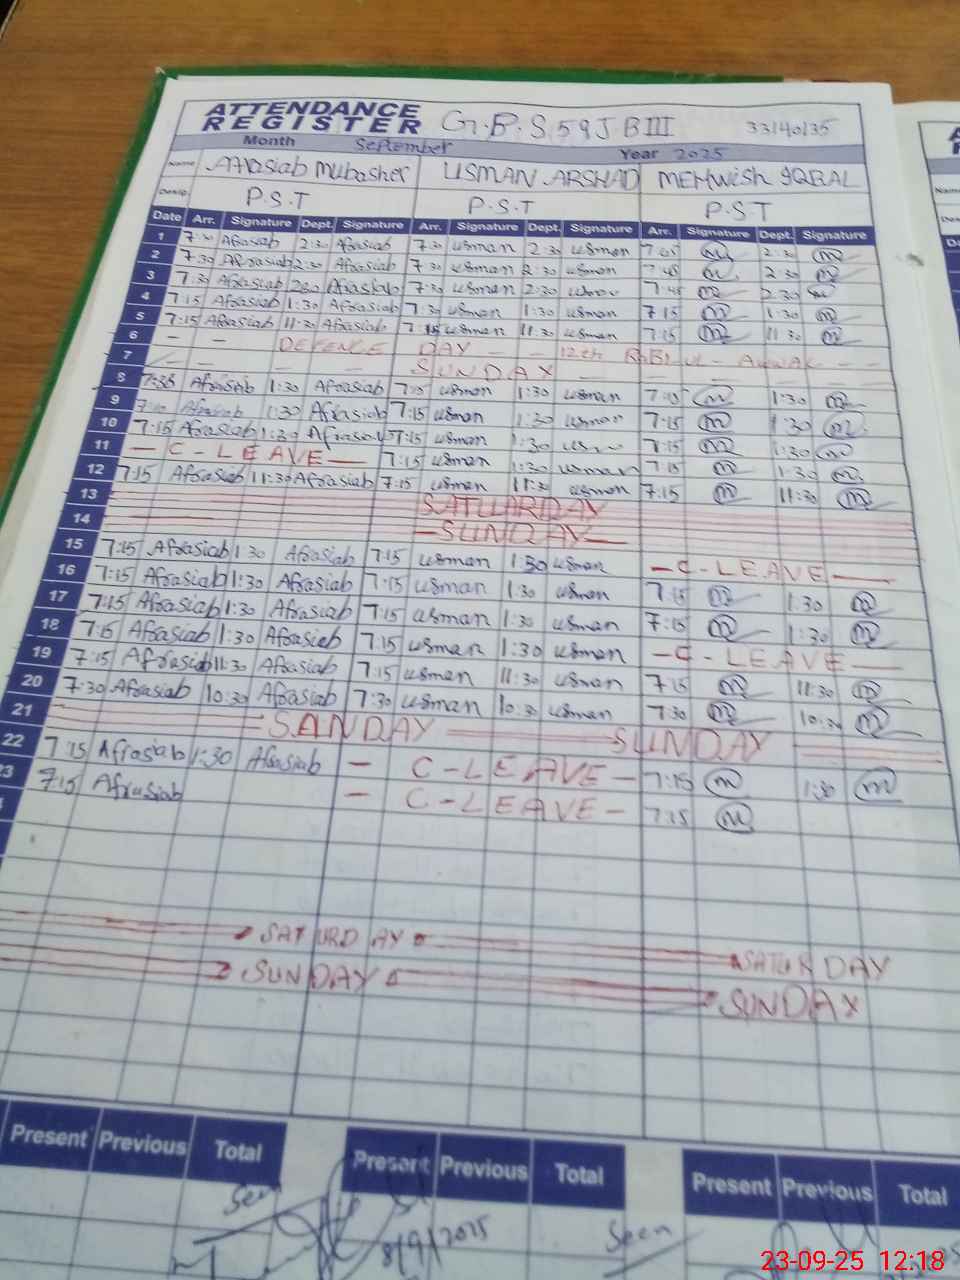 ATTENDANCE REGISTER G.P.S 59 J.B III 33140135
Month September Year 2025
Name Afrasiab Mubasher USMAN ARSHAD MEHWISH IQBAL
Desig. P.S.T P.S.T P.S.T
Date Arr. Signature Dept. Signature Arr. Signature Dept. Signature Arr. Signature Dept. Signature
1 7:30 Afrasiab 2:30 Afrasiab 7:30 usman 2:30 usman 7:45 m 2:30 m
2 7:30 Afrasiab 2:30 Afrasiab 7:30 usman 2:30 usman 7:45 m 2:30 m
3 7:30 Afrasiab 2:30 Afrasiab 7:30 usman 2:30 usman 7:45 m 2:30
4 7:15 Afrasiab 1:30 Afrasiab 7:30 usman 1:30 usman 7:15 m 1:30 m
5 7:15 Afrasiab 11:30 Afrasiab 7:15 usman 11:30 usman 7:15 m 11:30 m
6 - - DEFENCE DAY - - 12th RABI-UL-AWWAL - -
7 - - SUNDAY - -
8 Afrasiab 1:30 Afrasiab 7:15 usman 1:30 usman 7:15 m 1:30 m
9 Afrasiab 1:30 Afrasiab 7:15 usman 1:30 usman 7:15 m 1:30 m
10 7:15 Afrasiab 1:30 Afrasiab 7:15 usman 1:30 7:15 m 1:30 m
11 - C-LEAVE - 7:15 usman 1:30 usman 7:15 m 1:30 m
12 7:15 Afrasiab 11:30 Afrasiab 7:15 usman 11:30 usman 7:15 m 11:30 m
13 SATUARDAY
14 -SUNDAY-
15 7:15 Afrasiab 1:30 Afrasiab 7:15 usman 1:30 usman -C-LEAVE-
16 7:15 Afrasiab 1:30 Afrasiab 7:15 usman 1:30 usman 7:15 m 1:30 m
17 7:15 Afrasiab 1:30 Afrasiab 7:15 usman 1:30 usman 7:15 m 1:30 m
18 7:15 Afrasiab 1:30 Afrasiab 7:15 usman 1:30 usman -C-LEAVE-
19 7:15 Afrasiab 11:30 Afrasiab 7:15 usman 11:30 usman 7:15 m 11:30 m
20 7:30 Afrasiab 10:30 Afrasiab 7:30 usman 10:30 usman 7:30 m 10:30 m
21 SANDAY SUNDAY
22 7:15 Afrasiab 1:30 Afrasiab - C-LEAVE - 7:15 m 1:30 m
23 7:15 Afrasiab - C-LEAVE - 7:15 m
SATURDAY SATURDAY
SUNDAY SUNDAY
Present Previous Total Present Previous Total Present Previous Total
Seen 8/9/2025 Seen
23-09-25 12:18